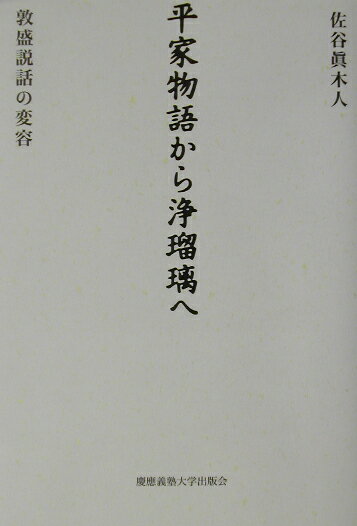 佐谷眞木人
平家物語から浄瑠璃へ
敦盛説話の変容
慶應義塾大学出版会